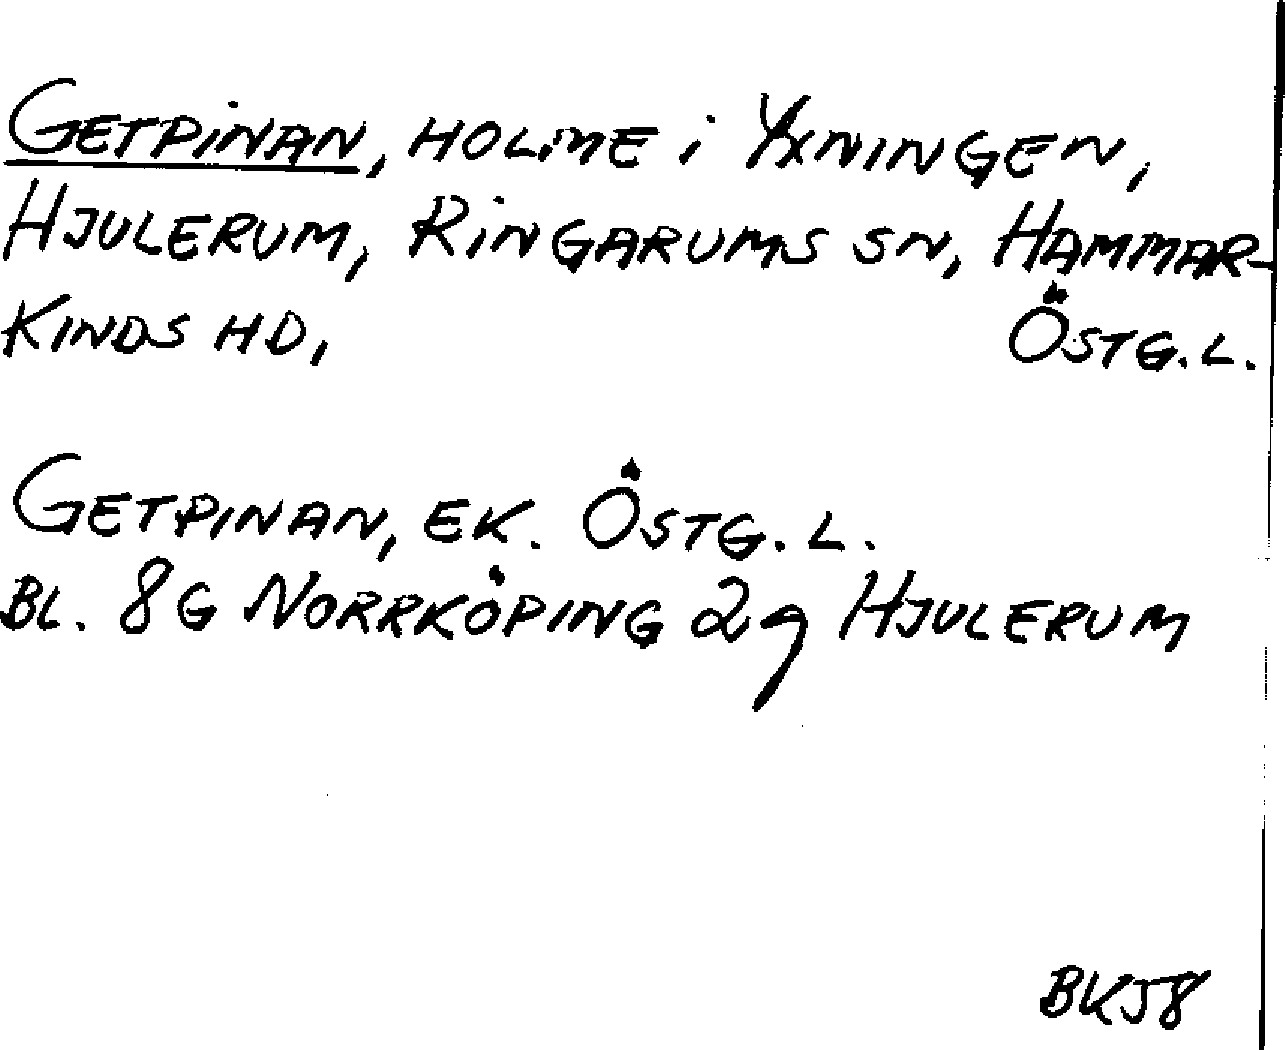 GETPINAN, HOLME i YXNINGEN,
HJULERUM, RINGARUMS SN, HAMMAR-
KINDS HD, ÖSTG. L.
GETPINAN, EK. ÖSTG. L.
BL. 8G NORRKÖPING 2g HJULERUM
BK58